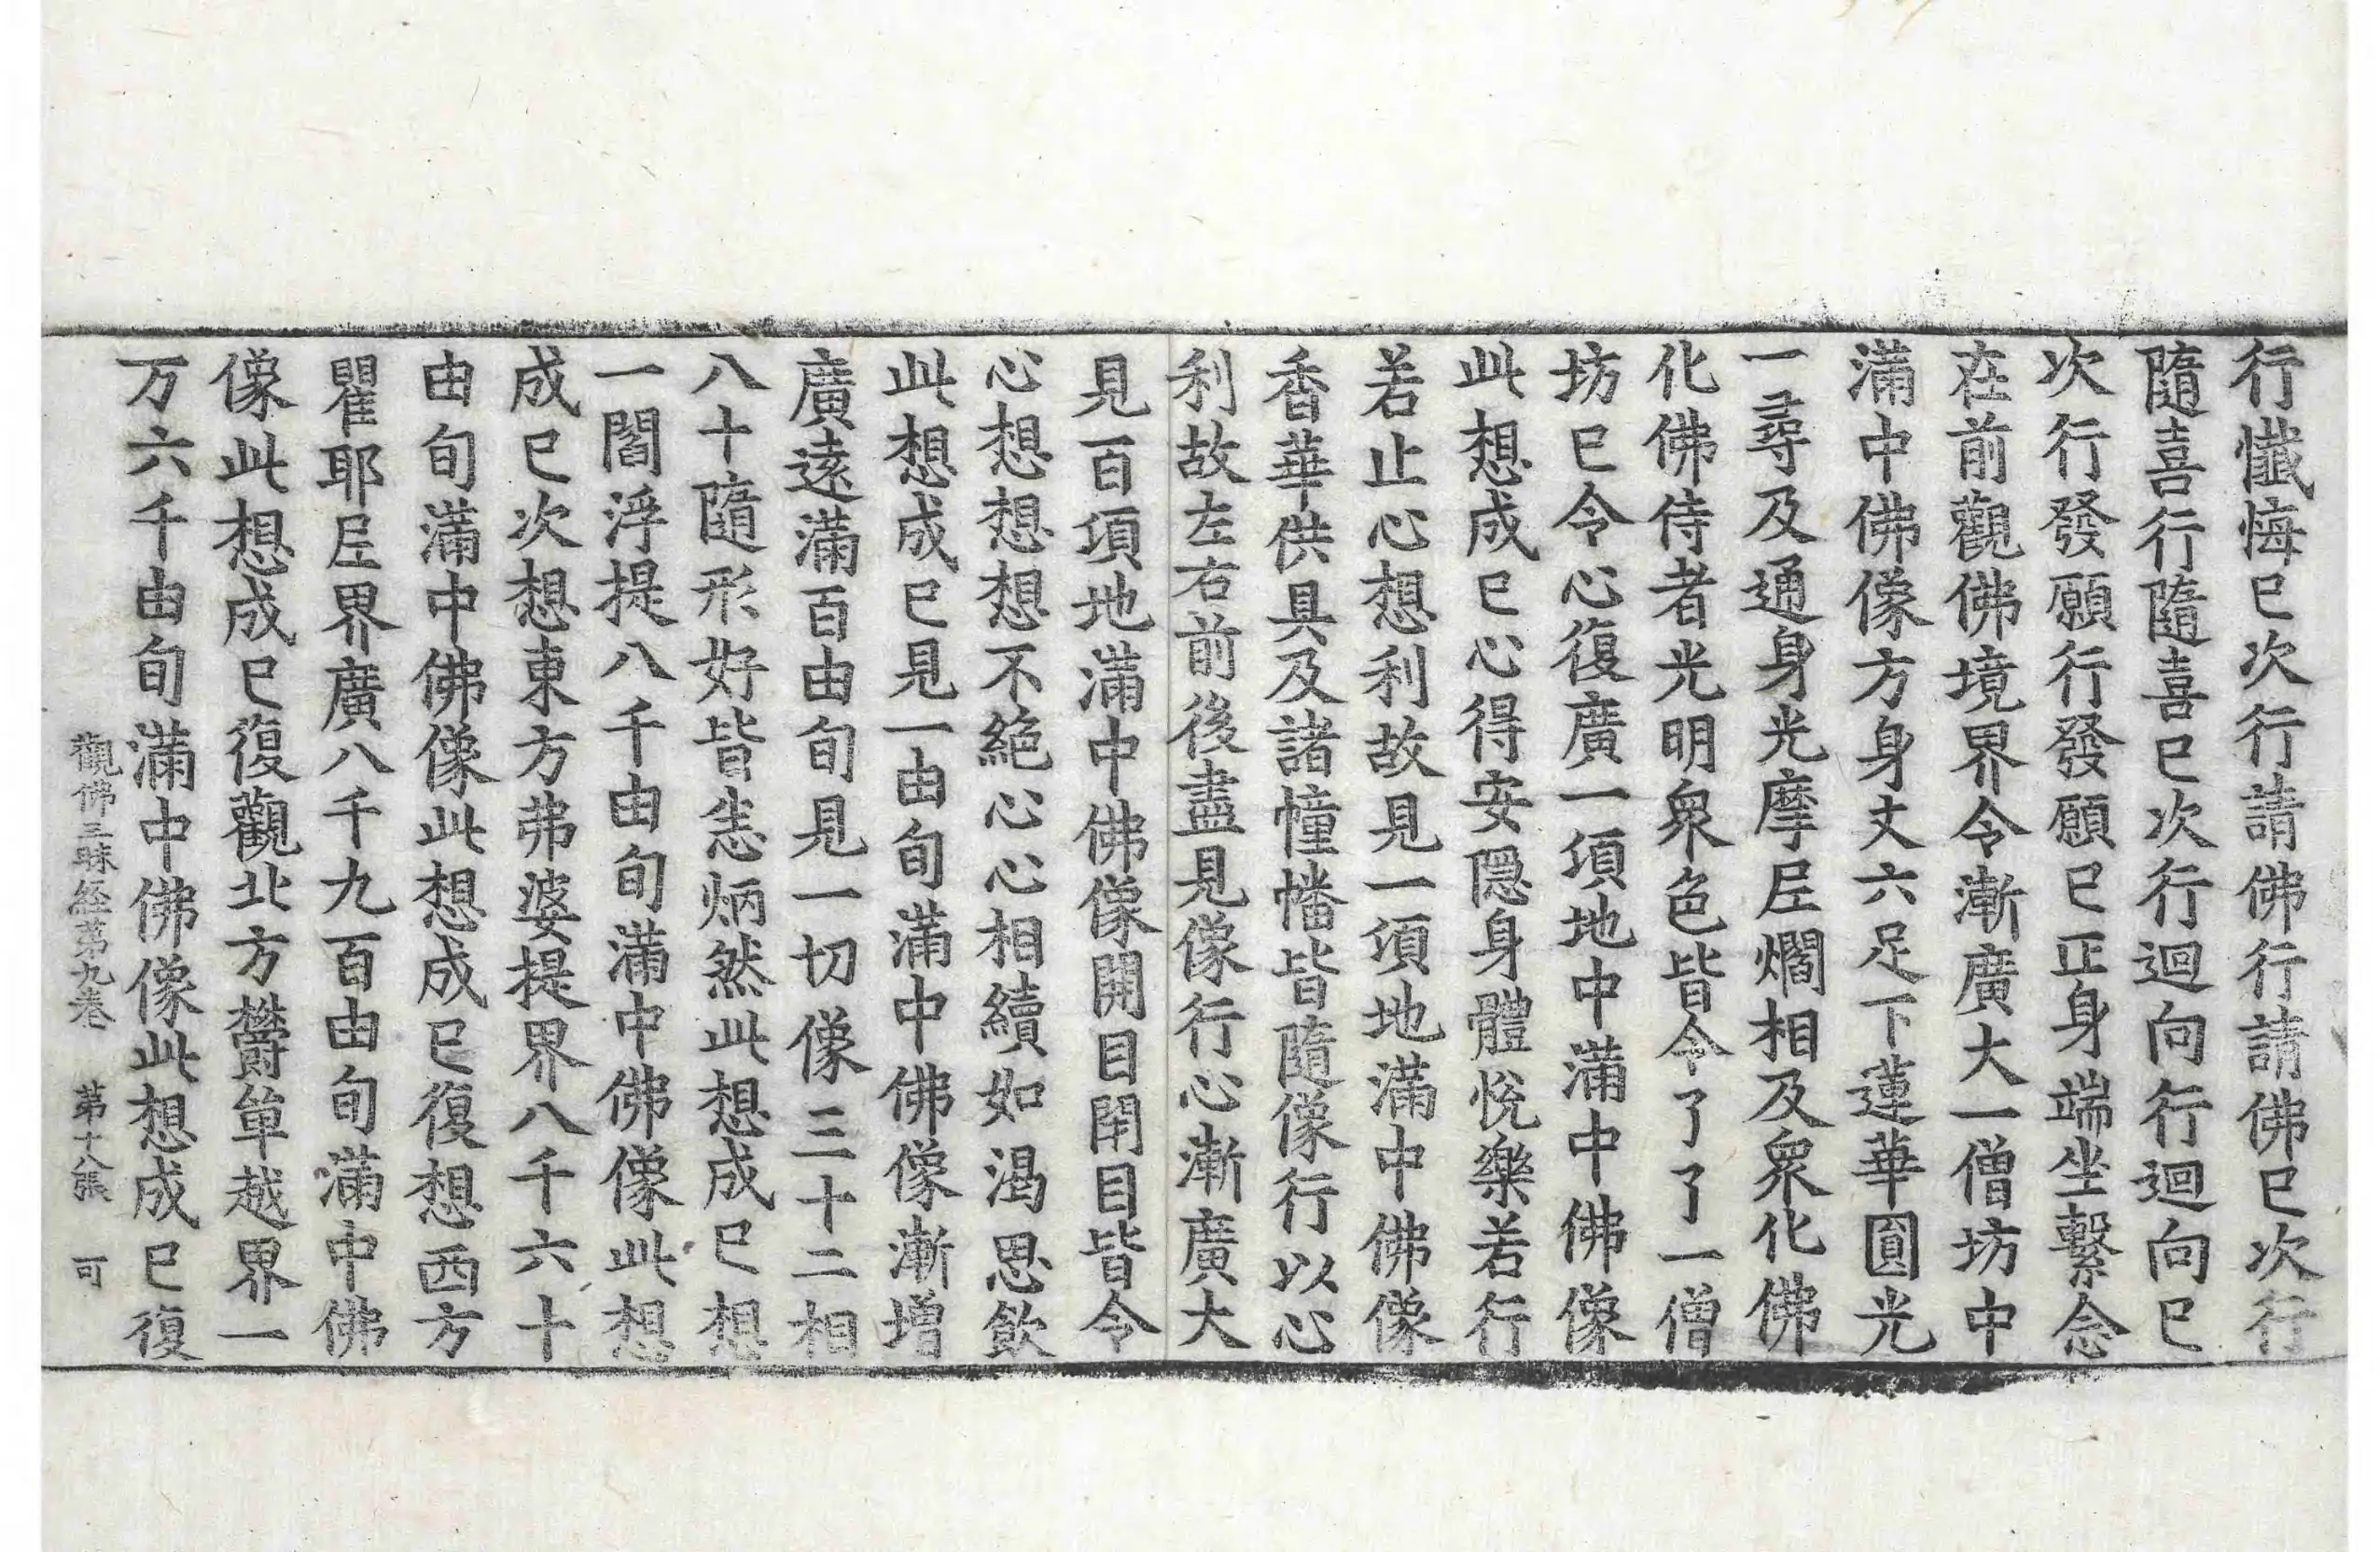 行懺悔已次行請佛行請佛已次行
隨喜行隨喜已次行迴向行迴向已
次行發願行發願已正身端坐繫念
在前觀佛境界令漸廣大一僧坊中
滿中佛像方身丈六足下蓮華圓光
一尋及通身光摩尼爓相及衆化佛
化佛侍者光明衆色皆令了了一僧
坊已令心復廣一頃地中滿中佛像
此想成已心得安隱身體悅樂若行
若止心想利故見一頃地滿中佛像
香華供具及諸幢幡皆隨像行以心
利故左右前後盡見像行心漸廣大
見百頃地滿中佛像開目閇目皆令
心想想想不絶心心相續如渴思飲
此想成已見一由旬滿中佛像漸增
廣遠滿百由旬見一切像三十二相
八十隨形好皆悉炳然此想成已想
一閻浮提八千由旬滿中佛像此想
成已次想東方弗婆提界八千六十
由旬滿中佛像此想成已復想西方
瞿耶尼界廣八千九百由旬滿中佛
像此想成已復觀北方欝單越界一
万六千由旬滿中佛像此想成已復
觀佛三昧経苐九卷 苐十八張 可